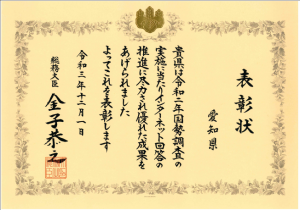 表彰状
愛知県
貴県は令和二年国勢調査の
実施に当たりインターネット回答の
推進に尽力され優れた成果を
あげられました
よってこれを表彰します
令和三年十二月一日
総務大臣 金子恭之